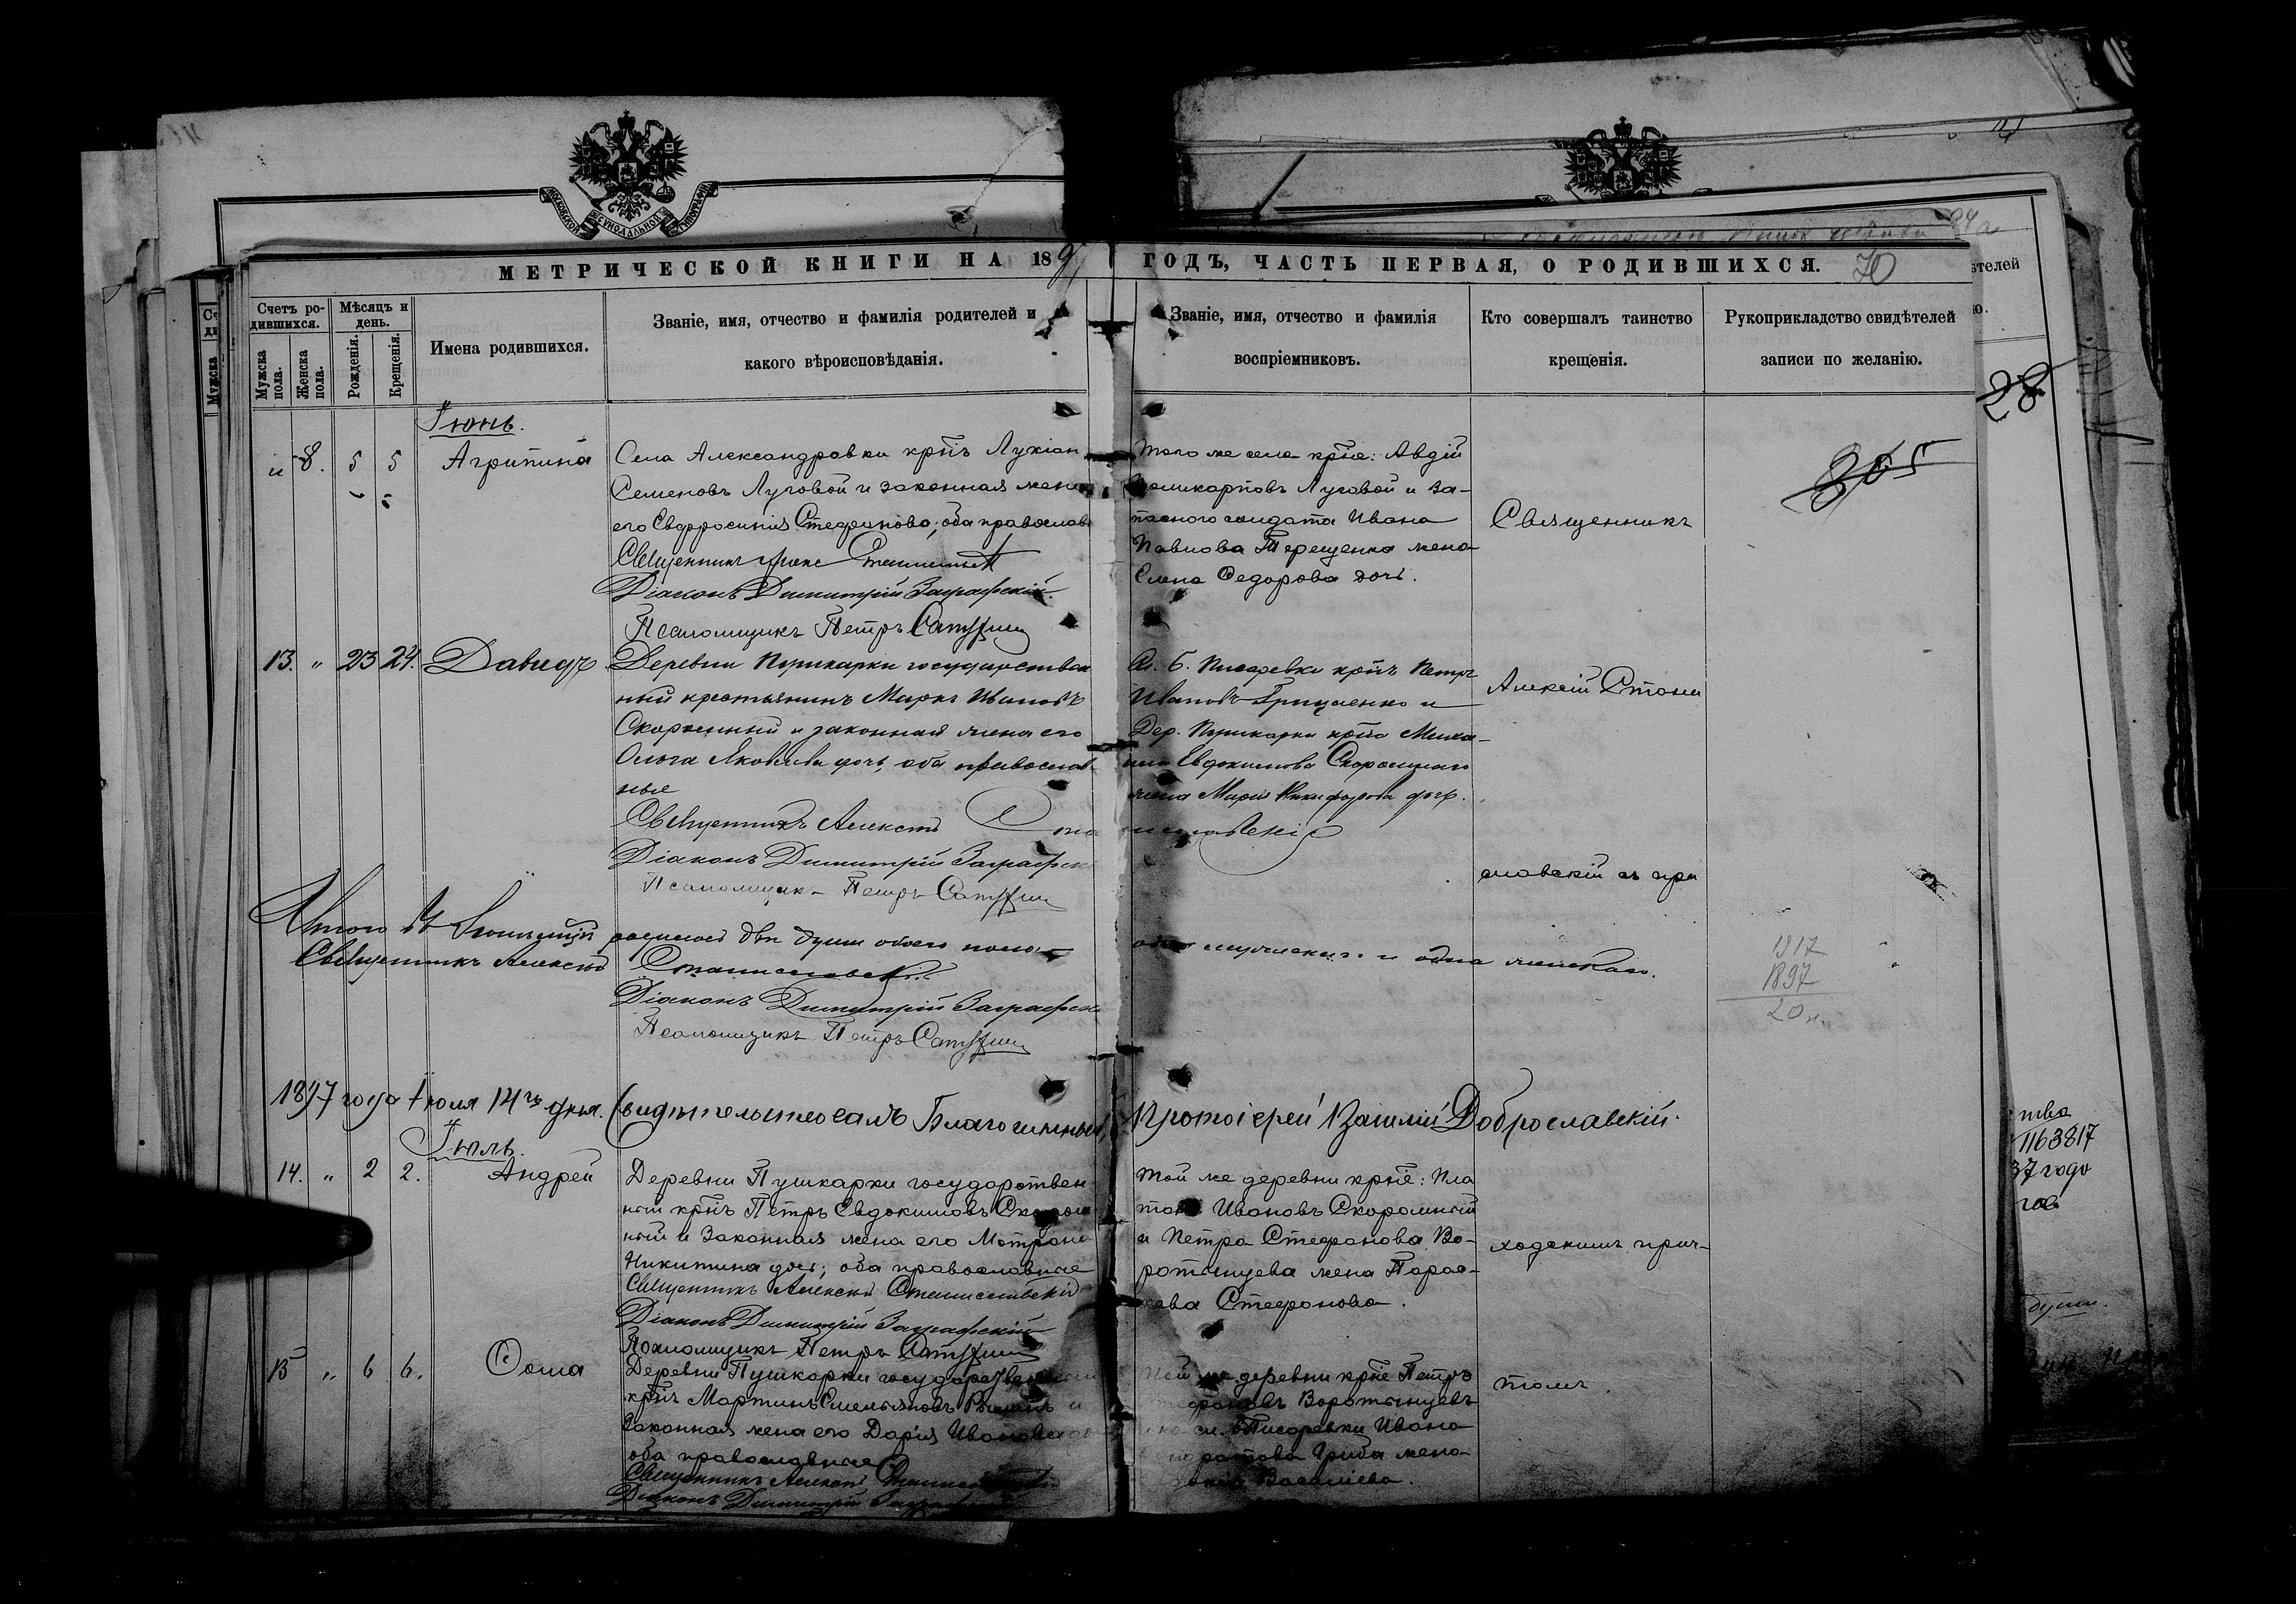 МОСКОВСКОЙ СѴНОДАЛЬНОЙ ТИПОГРАФІИ
МЕТРИЧЕСКОЙ КНИГИ НА 189
ГОДЪ, ЧАСТЬ ПЕРВАЯ, О РОДИВШИХСЯ. 70
Счетъ родившихся.
Мужска пола.
Женска пола.
Мѣсяцъ и день.
Рожденія.
Крещенія.
Имена родившихся.
Званіе, имя, отчество и фамилія родителей и
какого вѣроисповѣданія.
Званіе, имя, отчество и фамилія
воспріемниковъ.
Кто совершалъ таинство
крещенія.
Рукоприкладство свидѣтелей
записи по желанію.
28
Іюнь.
8. 5 5 Агрипина
Села Александровки крнъ Лукіан
Семеновъ Луговой и законная жена
его Евфросинія Стефанова; оба православ
Священникъ
Діаконъ Димитрій Заграфскій.
Псаломщикъ Петръ
того же села крне: Авдій
Поликарповъ Луговой и за-
паснаго солдата Ивана
Павлова Терещенка жена
Елена Федорова дочь.
Священникъ
305
13. " 23 24. Давидъ
Деревни Пушкарки государствен
ный крестьянинъ Маркъ Ивановъ
Скоромный и законная жена его
Ольга Яковлева дочь, оба православ-
ные
Священникъ Алексѣй
Діаконъ Димитрій Заграфск
Псаломщикъ Петръ
Сл. Б. Писаревки крнъ Петръ
Ивановъ Грищенко и
Дер. Пушкарки крна Миха-
ила Евдокимова Скоромнаго
жена Марія Никифорова дочь.
Алексій Стани
славскій съ при
Итого въ Іюнѣ мѣсяцѣ родилось двѣ души обоего пола
одна мужеская и одна женская.
Священникъ Алексѣй Станиславскій
Діаконъ Димитрій Заграфск
Псаломщикъ Петръ
1917
1897
20
1897 года Іюля 14го дня. Свидѣтельствовалъ Благочинный, Протоіерей Василій Доброславскій.
Іюль.
14. " 2 2. Андрей
Деревни Пушкарки государствен-
ный крнъ Петръ Евдокимовъ Скором
ный и законная жена его Матрона
Никитина дочь; оба православные
Священникъ Алексѣй Станиславскій
Діаконъ Димитрій Заграфскій
Псаломщикъ Петръ
той же деревни крне: Пла
тонъ Ивановъ Скоромный
и Петра Стефанова Во-
ротынцева жена Парас-
кева Стефанова.
ходскимъ прич-
15 " 6 6. Ѳома
Деревни Пушкарки государственный
крнъ Мартинъ Емельяновъ
законная жена его Дарія Иванова
оба православные
Священникъ Алексѣй
Діаконъ Димитрій
той же деревни крне Петръ
Стефановъ Воротынцевъ
сл. Б. Писаревки Ивана
Гриба жена
Василіева.
томъ.
тва
1163817
37 года
душ.